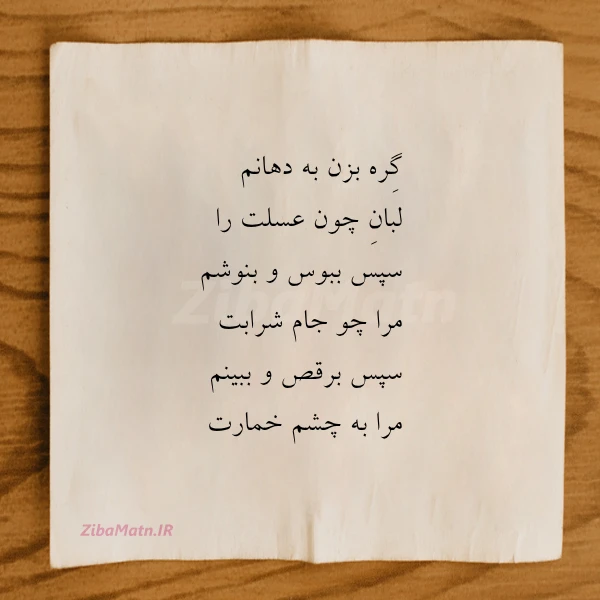 گِره بزن به دهانم
لبانِ چون عسلت را
سپس ببوس و بنوشم
مرا چو جام شرابت
سپس برقص و ببینم
مرا به چشم خمارت
ZibaMatn
ZibaMatn.IR